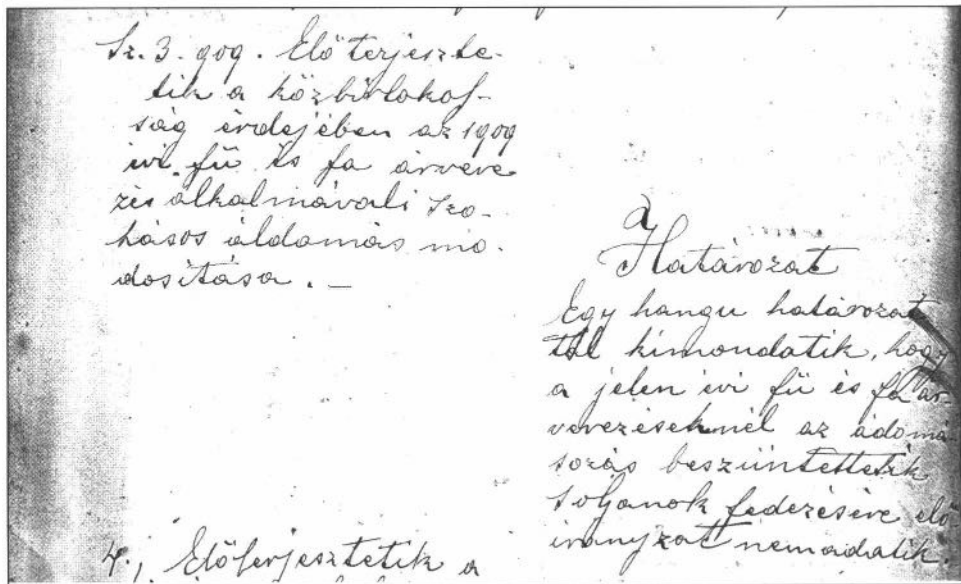 Sz. 3. 909. Előterjeszte-
tik a közbirtokos-
ság érdejében az 1909
ivi fü és fa árvere
zés alkalmávali szo-
kásos áldomás mo-
dositása. —
a
Határozat
Egy hangu határozat
tal kimondatik, hogy
a jelen ivi fü és fa ár-
verezéseknél az ádomá-
sozás beszüntettetik
s olyanok fedezésére elő
irányzat nem adatik.
4., Előterjesztetik a